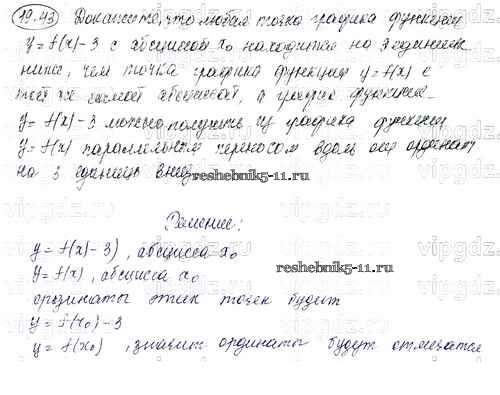 19.43 Докажите, что любая точка графика функции
y = f(x) - 3 с абсциссой x₀ находится на 3 единицы
ниже, чем точка графика функции y = f(x) с
той же самой абсциссой, а график функции
y = f(x) - 3 можно получить из графика функции
y = f(x) параллельным переносом вдоль оси ординат
на 3 единицы вниз
reshebnik5-11.ru
Решение:
y = f(x) - 3), абсцисса x₀
y = f(x), абсцисса x₀
reshebnik5-11.ru
ординаты этих точек будет
y = f(x₀) - 3
y = f(x₀), значит ординаты будут отличатся